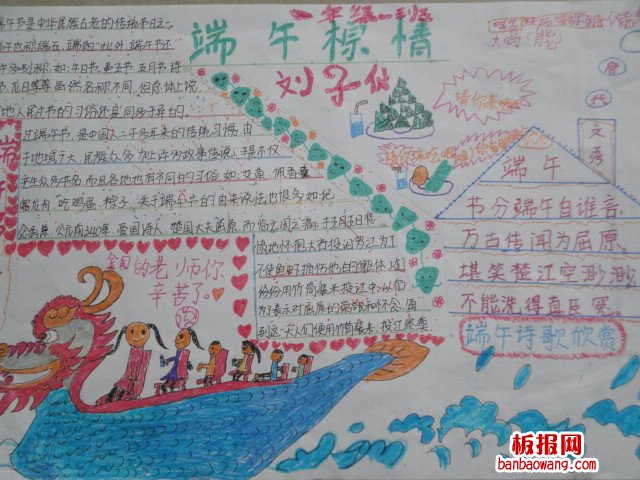 一年级一班
端午標情
刘子
端午节是中华民族古老的传统节日之一
午也称端五,端阳。此外,端午节还
午多别称,如:午日节、重五节、五月节、诗
节、龙日等等。虽然名称不同,但总体上说,
地人民过节的习俗还是同多于异的。
过端午节,是中国人二千多年来的传统习惯,由
于地域广大,民族众多,加上许多故事传说,于是不仅
产生众多节名,而且各地也有不同的习俗。如:
赛龙舟,吃鸡蛋,粽子,关于端午节的由来说法也很多,如:纪
念屈原。公元前340年,爱国诗人、楚国大夫屈原,面临亡国之痛,于五月五日
投江
为了
不使鱼虾损伤他的躯体,
纷纷用竹筒装米投江中,以
为了表示对屈原的崇敬和怀念,每
到这一天,人们便用竹筒装米,投江祭奠
全国的老师你
辛苦了。
大吗(能)
唐
代
文
秀
端午
节分端午自谁言,
万古传闻为屈原。
堪笑楚江空渺渺,
不能洗得直臣冤。
端午诗歌欣赏
板报网
banbaowang.com